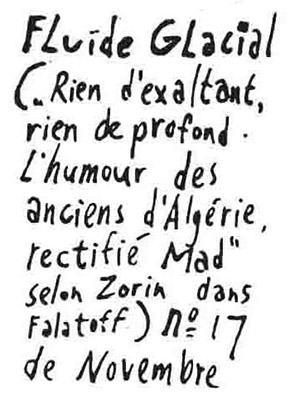 FLuide GLacial
(„Rien d'exaltant,
rien de profond.
L'humour des
anciens d'Algérie,
rectifié Mad"
selon Zorin dans
Falatoff) nº 17
de Novembre